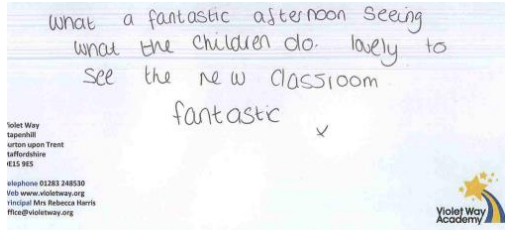 What a fantastic afternoon seeing
what the children do. lovely to
see the new classroom
fantastic
x
iolet Way
tapenhill
urton upon Trent
taffordshire
E15 9ES
elephone 01283 248530
Veb www.violetway.org
rincipal Mrs Rebecca Harris
ffice@violetway.org
Violet Way
Academy